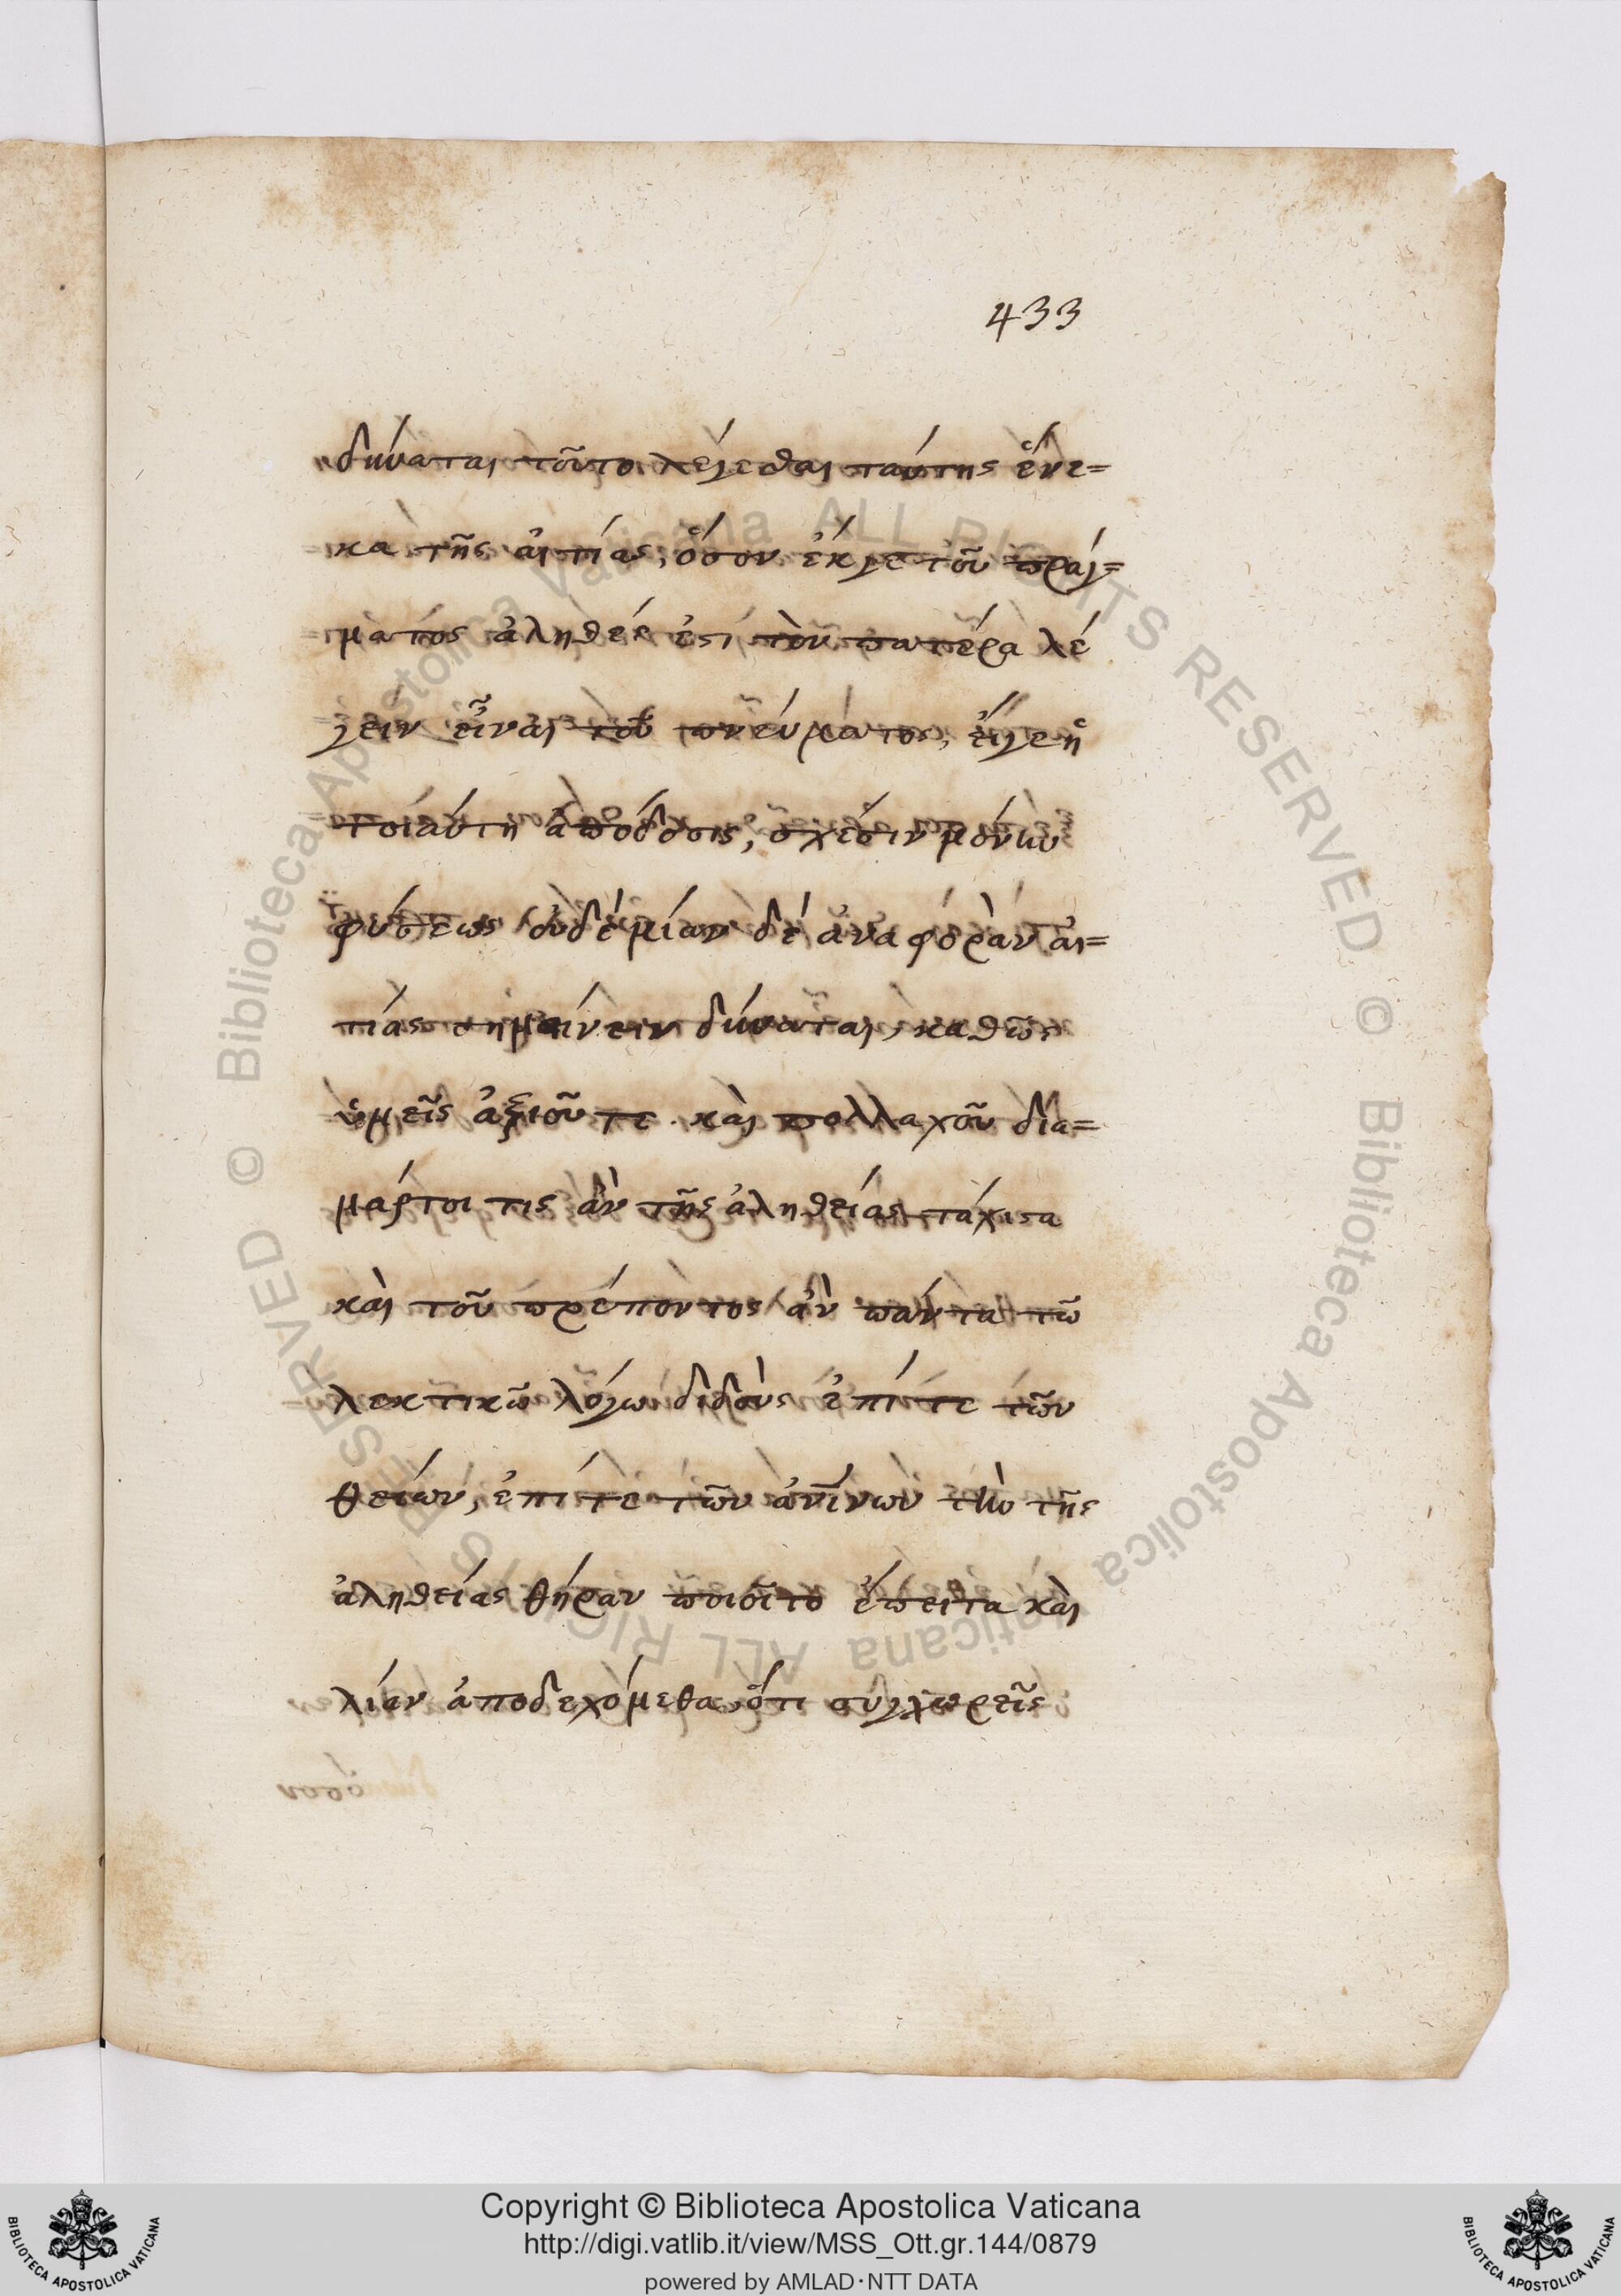 433
δύναται τοῦτο λέγεσθαι ταύτης ἕνε=
κα τῆς αἰτίας, ὅσον ἐκ γε τοῦ πράγ=
ματος ἀληθές ἐστι τὸν πατέρα λέ
γειν εἶναι τοῦ πνεύματος, εἴγε ἡ
τοιαύτη ἀπόδοσις, σχέσιν μόνην
φύσεως οὐδεμίαν δὲ ἀναφορὰν αἰ=
τίας σημαίνειν δύναται, καθὼς
ὑμεῖς ἀξιοῦτε. καὶ πολλαχοῦ δια=
μάρτοι τις ἂν τῆς ἀληθείας τάχιστα
καὶ τοῦ πρέποντος ἂν πάντα τῶ
λεκτικῶ λόγω διδοὺς ἐπί τε τῶν
θείων, ἐπί τε τῶν ἀνίνων τὴν τῆς
ἀληθείας θήραν ποιοῖτο ἔπειτα καὶ
λίαν ἀποδεχόμεθα ὅτι συγχωρεῖς
© Biblioteca Apostolica Vaticana ALL RIGHTS RESERVED
© Biblioteca Apostolica Vaticana ALL RIGHTS RESERVED
Copyright © Biblioteca Apostolica Vaticana
http://digi.vatlib.it/view/MSS_Ott.gr.144/0879
powered by AMLAD·NTT DATA
BIBLIOTECA APOSTOLICA VATICANA
BIBLIOTECA APOSTOLICA VATICANA